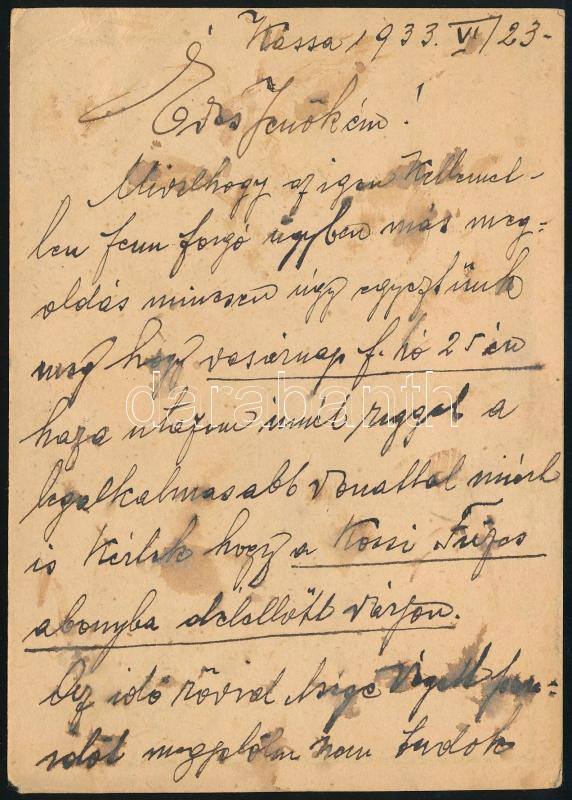 Kassa, 1933. VI/23-
Édes Jenőkém!
Mivelhogy az igen kellemet-
len fenn forgó ügyben más meg-
oldás nincsen úgy egyeztünk
meg hogy vasárnap f. hó 25 én
haza utazom innét reggel a
legalkalmasabb vonattal miért
is kérlek hogy a Kossi Füzes
abonyba délellőtt várjon.
Az idő rövid
időt megjelölni nem tudok
darabanth.com